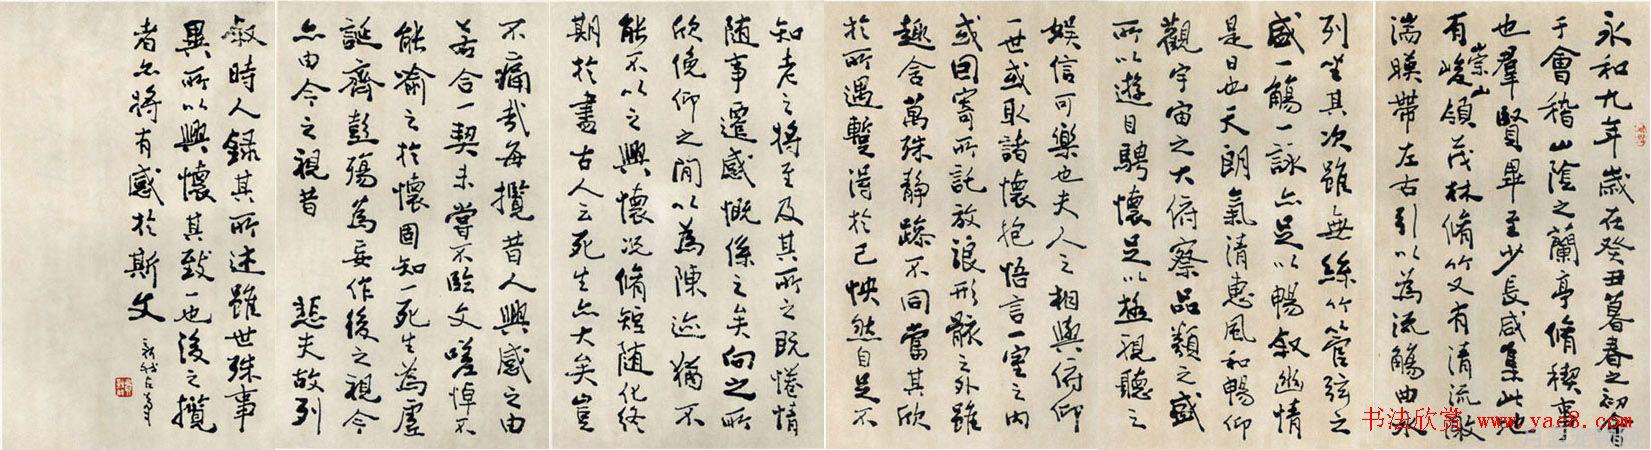 永和九年歲在癸丑暮春之初會
于會稽山陰之蘭亭脩禊事
也羣賢畢至少長咸集此地
有崇山峻領茂林脩竹又有清流激
湍暎帶左右引以為流觴曲水
列坐其次雖無絲竹管弦之
盛一觴一詠亦足以暢叙幽情
是日也天朗氣清惠風和暢仰
觀宇宙之大俯察品類之盛
所以遊目騁懷足以極視聽之
娛信可樂也夫人之相與俯仰
一世或取諸懷抱悟言一室之內
或因寄所託放浪形骸之外雖
趣舍萬殊靜躁不同當其欣
於所遇蹔得於己怏然自足不
知老之將至及其所之既惓情
隨事遷感慨係之矣向之所
欣俛仰之間以為陳迹猶不
能不以之興懷況脩短隨化終
期於盡古人云死生亦大矣豈
不痛哉每攬昔人興感之由
若合一契未嘗不臨文嗟悼不
能喻之於懷固知一死生為虛
誕齊彭殤為妄作後之視今
亦由今之視昔 悲夫故列
叙時人錄其所述雖世殊事
異所以興懷其致一也後之攬
者亦將有感於斯文
书法欣赏 www.yac8.com